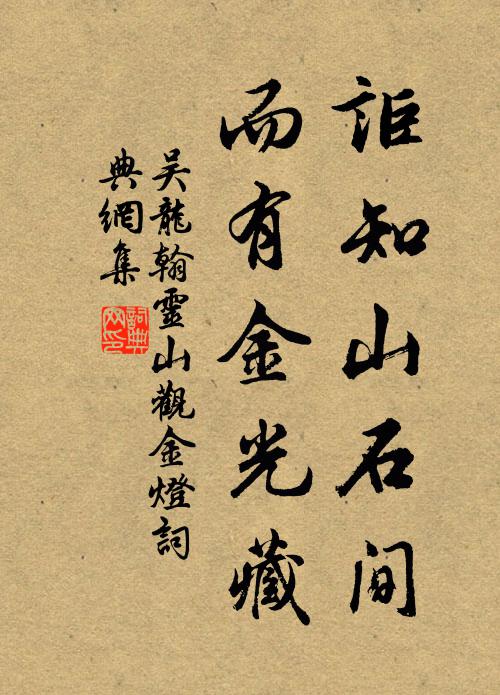 詎知山石间
而有金光藏
吴龍翰靈山觀金燈詞
典網集
詞典
网印